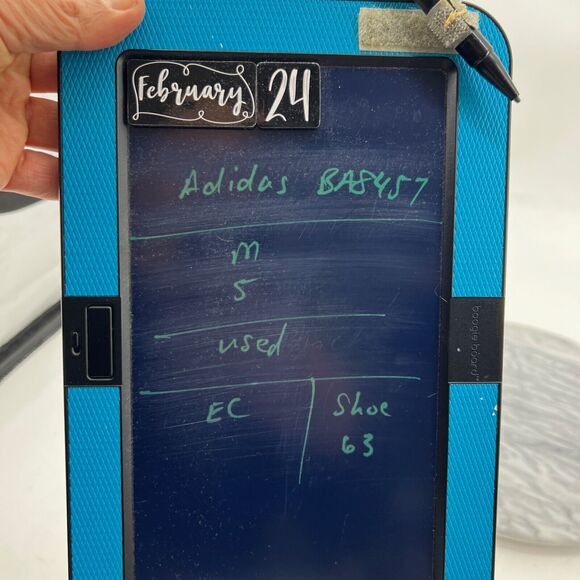 February 24
Adidas BA8457
M
5
used
EC
Shoe
63
boogie board